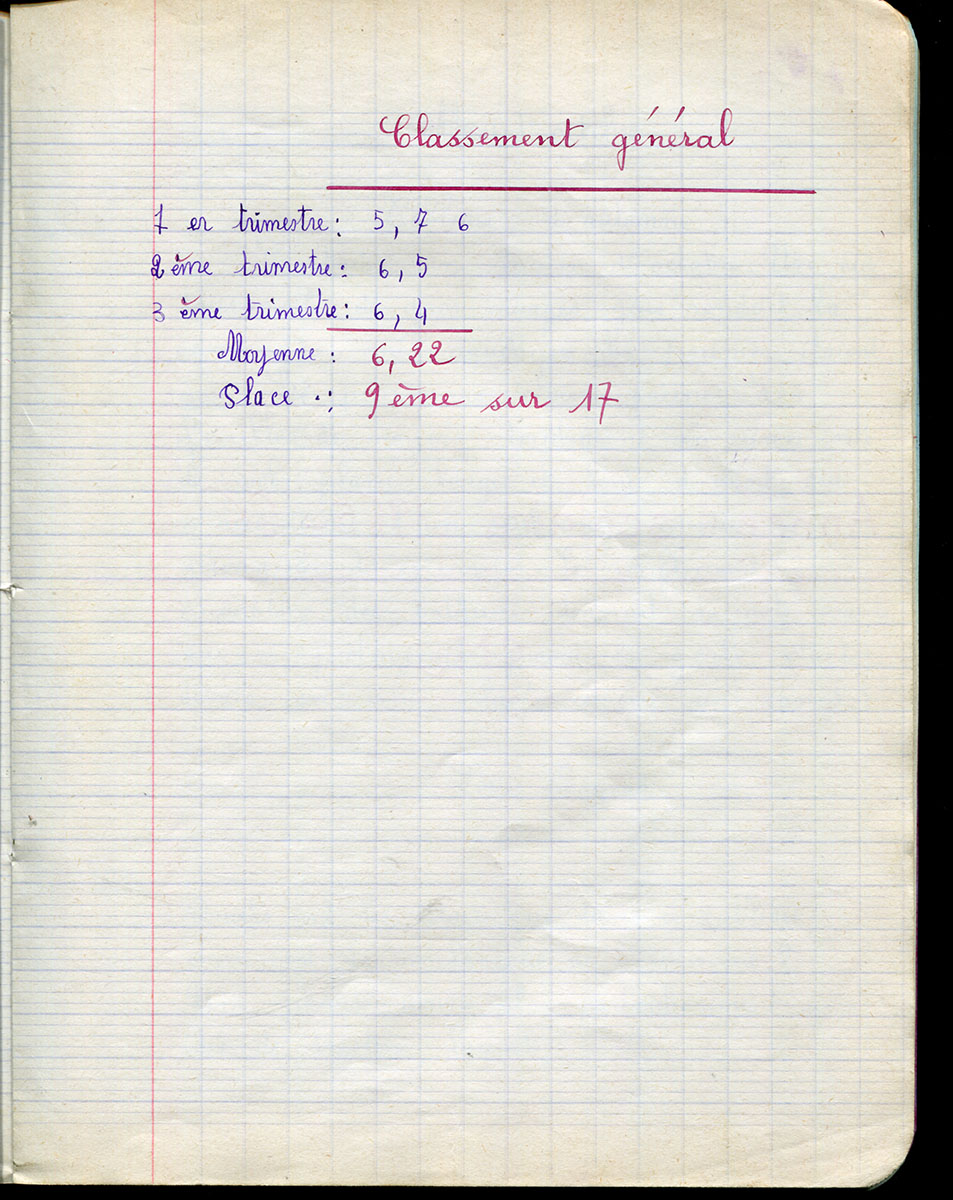 Classement général
1 er trimestre : 5,7 6
2 ème trimestre : 6,5
3 ème trimestre : 6,4
Moyenne : 6,22
Place : 9 ème sur 17